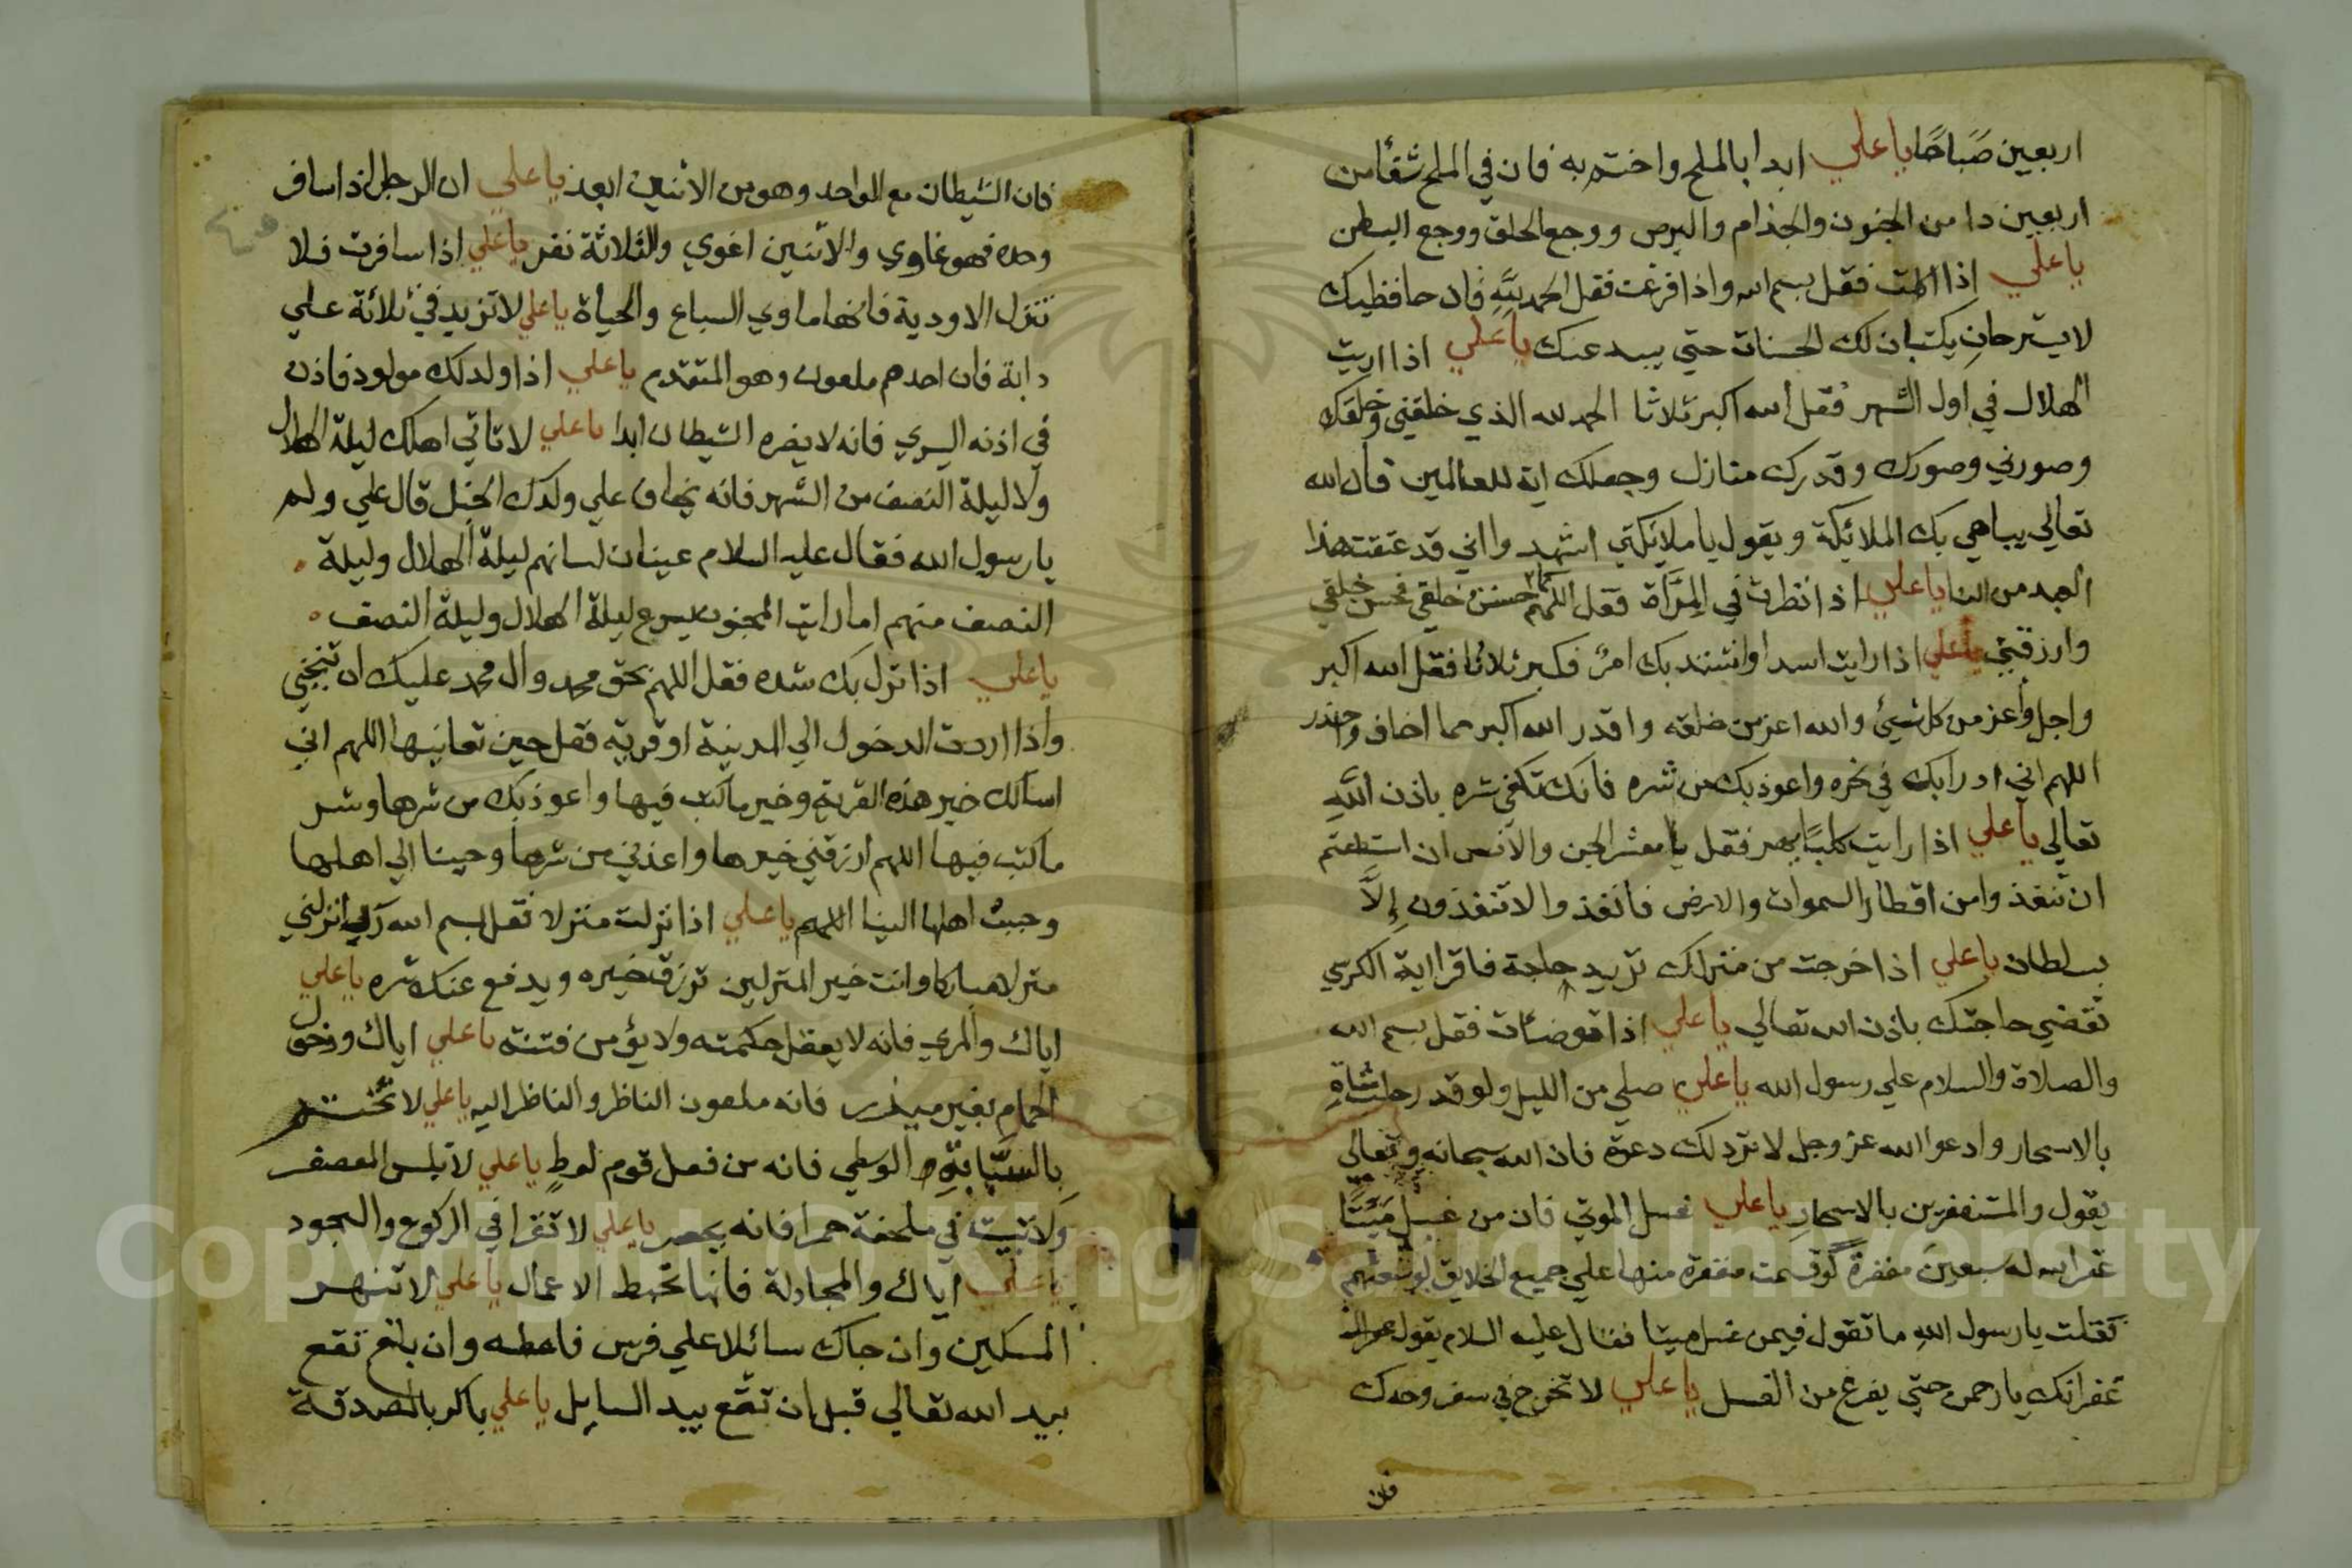 اربعين صَبَاحًا يا علي ابدا بالملح واختم به فان في الملح شفأ من
اربعين دا من الجنون والجذام والبرص ووجع الحلق ووجع البطن
يا علي اذا اكلت فقل بسم الله واذا فرغت فقل الحمد لله فان حافظيك
لا يسترحان يكتبان لك الحسنات حتي يبعد عنك يا علي اذا اريت
الهلال في اول الشهر فقل الله اكبر ثلاثا الحمد لله الذي خلقني وخلقك
وصورني وصورك وقدرك منازل وجعلك اية للعالمين فان الله
تعالي يباهي بك الملائكة ويقول يا ملائكتي اشهدوا اني قد عتقت هذا
العبد من النار يا علي اذا نظرت في المرَّاة فقل اللهم كما حسنت خلقي فحسن خلقي
وارزقني يا علي اذا رايت اسدا او اشتد بك امرٌ فكبر ثلاثا فقل الله اكبر
واجل وأعز من كل شيئ والله اعز من خلقه واقدر الله اكبر مما اخاف واحذر
اللهم اني ادرا بك في نحره واعوذ بك من شره فانك تكفي شره باذن اللهِ
تعالي يا علي اذا رايت كلبًا يهر فقل يا معشر الجن والانس ان استطعتم
ان تنفذوا من اقطار السموات والارض فانفذوا لا تنفذون إلاَّ
بسلطان يا علي اذا خرجت من منزلك تريد حاجة فاقرا اية الكرسي
تقضي حاجتك باذن الله تعالي يا علي اذا توضات فقل بسم الله
والصلاة والسلام علي رسول الله يا علي صلي من الليل ولو قدر حلب شاةٍ
بالاسحار وادعوا الله عز وجل لا ترد لك دعوة فان الله سبحانه وتعالي
يقول والمستغفرين بالاسحارِ يا علي غسل الموتي فان من غسل مَيْتًا
غفر الله له سبعين مغفرة لو قسمت مغفرة منها علي جميع الخلايق لوسعتهم
فقلت يا رسول اللهِ ما تقول فيمن غسل ميتا فقال عليه السلام يقول
غفرانك يا رحمن حتي يفرغ من الغسل يا علي لا تخرج في سفر وحدك
فان
فان الشيطان مع الواحد وهو من الاثنين ابعد يا علي ان الرجل اذا سافر
وحده فهو غاوي والاثنين اغوي والثلاثة نفر يا علي اذا سافرت فلا
تنزل الاودية فانها ماوي السباع والحياة يا علي لا تزيد في ثلاثة علي
دابة فان احدهم ملعون وهو المتقدم يا علي اذا ولد لك مولود فاذن
في اذنه اليسري فانه لا يضره الشيطان ابدا يا علي لا تاتي اهلك ليلة الهلال
ولا ليلة النصف من الشهر فانه يخاف علي ولدك الخبل قال علي ولم
يا رسول الله فقال عليه السلام ليلة الهلال وليلة
النصف منهم اما رايت المجنون يسرع ليلة الهلال وليلة النصف
يا علي اذا نزل بك شده فقل اللهم بحق محمد وال محمد عليك ان تنجني
واذا اردت الدخول الي المدينة او قرية فقل حين تعانيها اللهم اني
اسالك خير هذه القرية وخير ما كتب فيها واعوذ بك من شرها وشر
ما كتب فيها اللهم ارزقني خيرها واعذني من شرها وحببنا الي اهلها
وحبب اهلها الينا اللهم يا علي اذا نزلت منزلا فقل بسم الله رب انزلني
منزلا مباركا وانت خير المنزلين ترزق خيره ويدفع عنك شره يا علي
اياك والمري فانه لا يعقل حكمته ولا يؤمن فتنته يا علي اياك ودخول
الحمام بغير ميذر فانه ملعون الناظر والناظر اليه يا علي لا تختتم
بالسبَّابة والوسطي فانه من فعل قوم لوطٍ يا علي لا تلبس المعصفر
ولا تبيت في ملحفة حمرا فانه يحصر يا علي لا تقرا في الركوع والسجود
يا علي اياك والمجادلة فانها تحبط الاعمال يا علي لا تنهر
المسكين وان جاك سائلا علي فرس فاعطه وان بلغ تقع
بيد الله تعالي قبل ان تقع بيد السايل يا علي باكر بالصدقة
Copyright © King Saud University